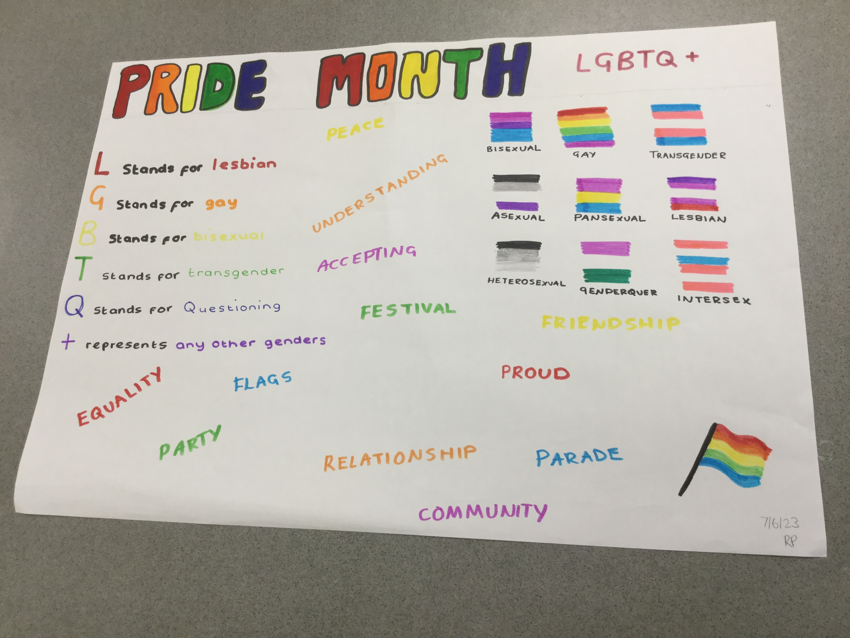 PRIDE MONTH
LGBTQ+
PEACE
L Stands for lesbian
G Stands for gay
B Stands for bisexual
T Stands for transgender
Q Stands for Questioning
+ represents any other genders
UNDERSTANDING
ACCEPTING
FESTIVAL
BISEXUAL GAY TRANSGENDER
ASEXUAL PANSEXUAL LESBIAN
HETEROSEXUAL GENDERQUER INTERSEX
FRIENDSHIP
EQUALITY
FLAGS
PROUD
PARTY
RELATIONSHIP
PARADE
COMMUNITY
7/6/23
RP